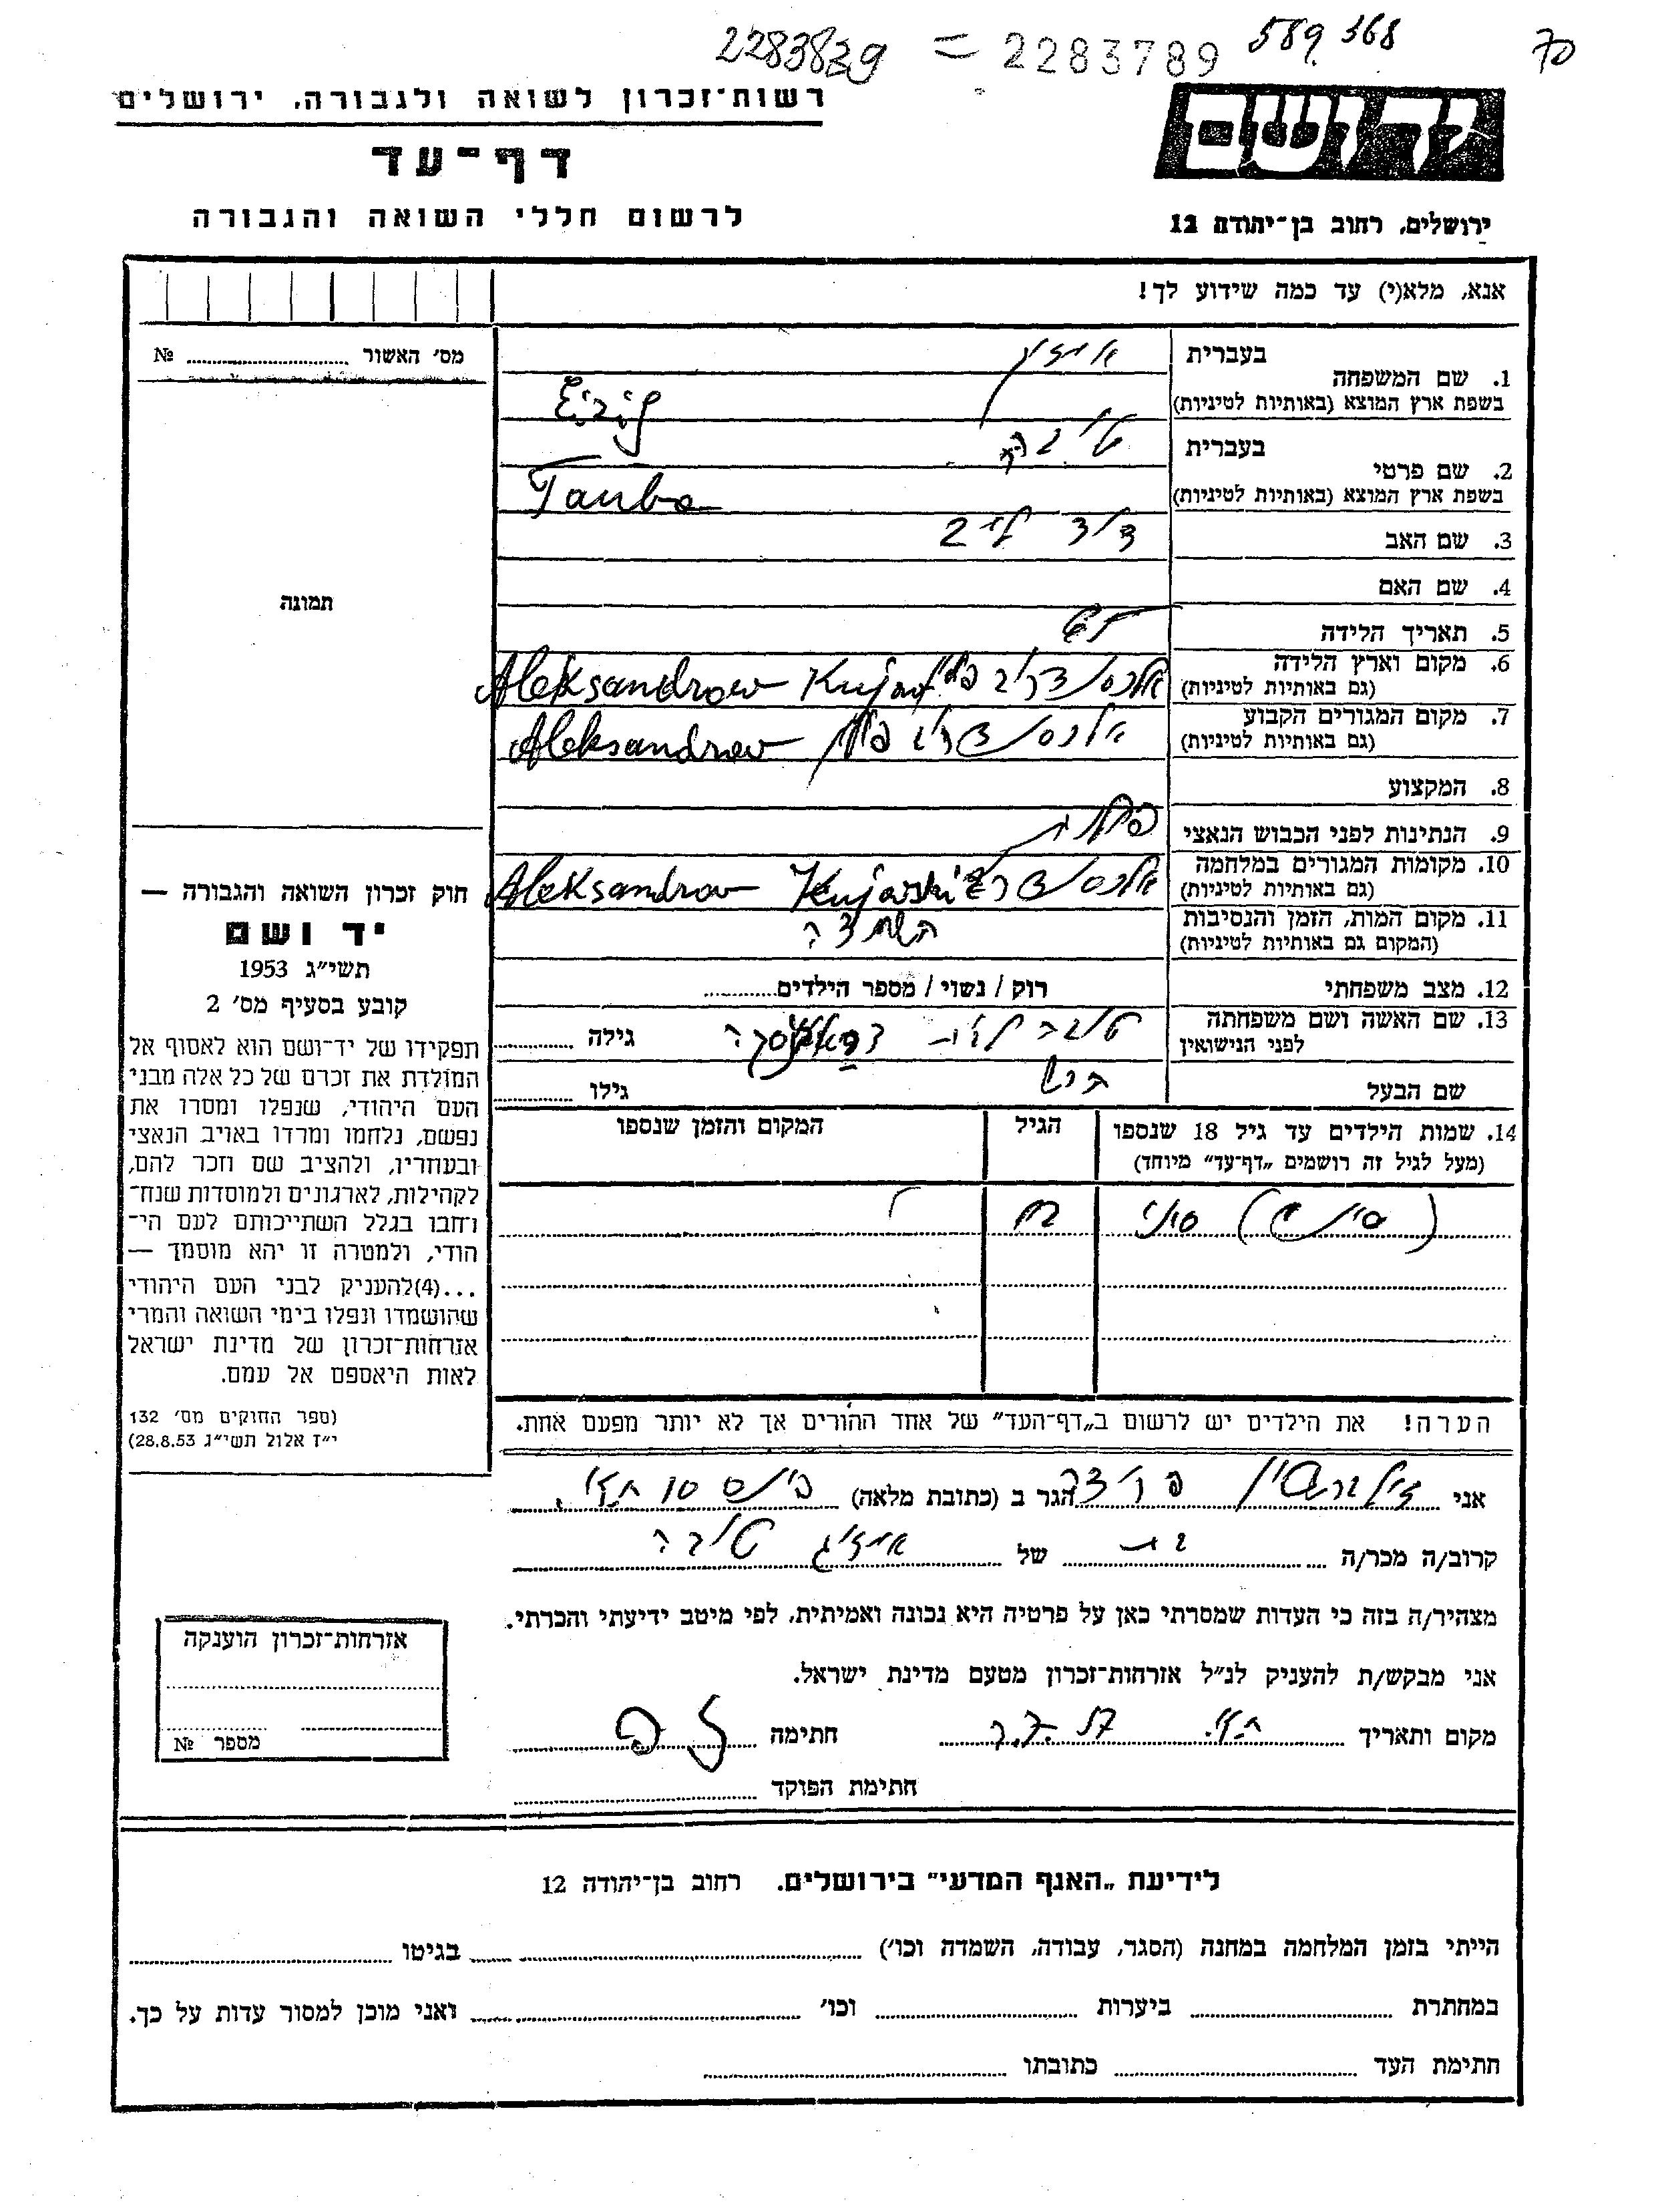 2283839 = 2283789 589 368 70
רשות־זכרון לשואה ולגבורה, ירושלים
ידושם
דף־עד
לרשום חללי השואה והגבורה
ירושלים, רחוב בן־יהודה 12
אנא, מלא(י) עד כמה שידוע לך!
מס׳ האשור №
תמונה
1. שם המשפחה
בעברית
בשפת ארץ המוצא (באותיות לטיניות)
Eizig
2. שם פרטי
בעברית טובה
בשפת ארץ המוצא (באותיות לטיניות)
Tauba
3. שם האב דוד
4. שם האם
5. תאריך הלידה
6. מקום וארץ הלידה
(גם באותיות לטיניות)
Aleksandrow Kujaw
7. מקום המגורים הקבוע
(גם באותיות לטיניות)
Aleksandrow
8. המקצוע
9. הנתינות לפני הכבוש הנאצי
10. מקומות המגורים במלחמה
(גם באותיות לטיניות)
Aleksandrow Kujawski
11. מקום המות, הזמן והנסיבות
(המקום גם באותיות לטיניות)
12. מצב משפחתי רוק / נשוי / מספר הילדים
13. שם האשה ושם משפחתה
לפני הנישואין
טובה גילה
שם הבעל גילו
14. שמות הילדים עד גיל 18 שנספו
(מעל לגיל זה רושמים „דף־עד״ מיוחד)
הגיל
המקום והזמן שנספו
הערה! את הילדים יש לרשום ב„דף־העד״ של אחד ההורים אך לא יותר מפעם אחת.
חוק זכרון השואה והגבורה —
יד ושם
תשי״ג 1953
קובע בסעיף מס׳ 2
תפקידו של יד־ושם הוא לאסוף אל
המולדת את זכרם של כל אלה מבני
העם היהודי, שנפלו ומסרו את
נפשם, נלחמו ומרדו באויב הנאצי
ובעוזריו, ולהציב שם וזכר להם,
לקהילות, לארגונים ולמוסדות שנח־
רחבו בגלל השתייכותם לעם הי־
הודי, ולמטרה זו יהא מוסמך —
...(4)להעניק לבני העם היהודי
שהושמדו ונפלו בימי השואה והמרי
אזרחות־זכרון של מדינת ישראל
לאות היאספם אל עמם.
(ספר החוקים מס׳ 132
י״ז אלול תשי״ג 28.8.53)
אני הגר ב (כתובת מלאה)
קרוב/ה מכר/ה בת של אייזיג טובה
מצהיר/ה בזה כי העדות שמסרתי כאן על פרטיה היא נכונה ואמיתית, לפי מיטב ידיעתי והכרתי.
אני מבקש/ת להעניק לנ״ל אזרחות־זכרון מטעם מדינת ישראל.
מקום ותאריך חתימה
חתימת הפוקד
אזרחות־זכרון הוענקה
מספר №
לידיעת „האגף המדעי״ בירושלים. רחוב בן־יהודה 12
הייתי בזמן המלחמה במחנה (הסגר, עבודה, השמדה וכו׳) בגיטו
במחתרת ביערות וכו׳ ואני מוכן למסור עדות על כך.
חתימת העד כתובתו